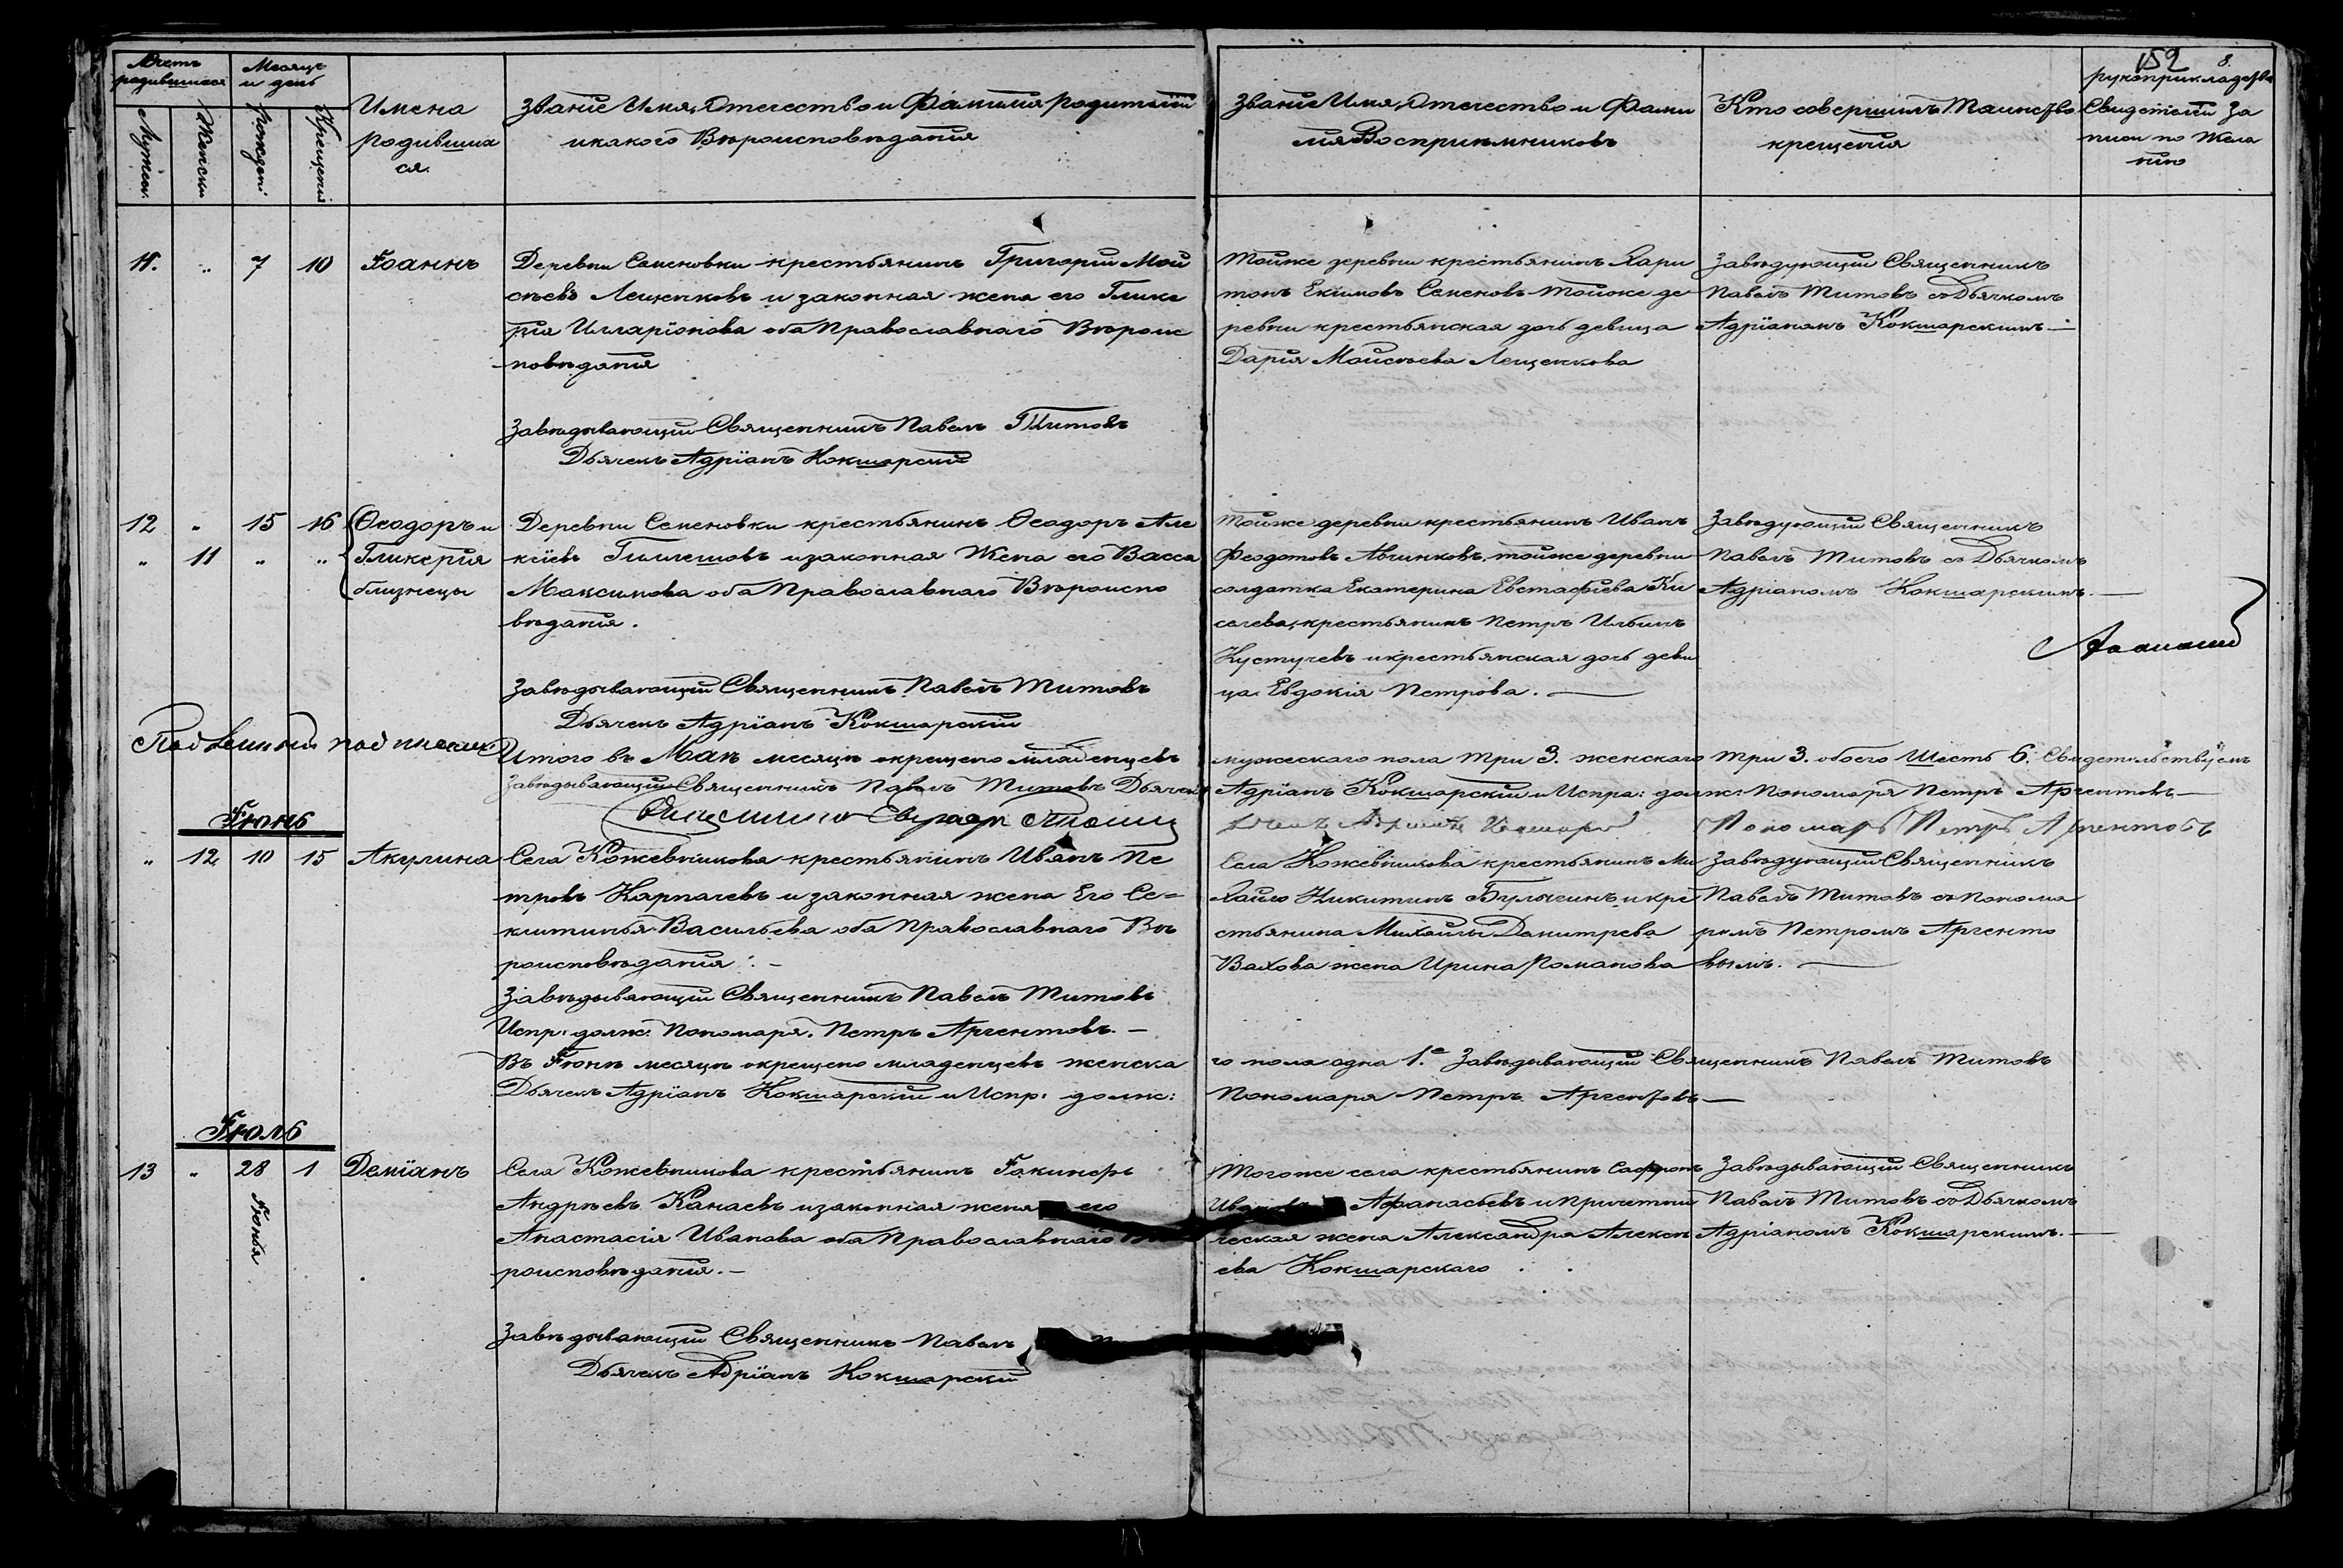 152 8.
Счетъ родившихся
Месяцъ и день
Мужеск.
Женски
Рождені
Крещенія
Имена родившихся.
Званіе Имя, Отечество и Фамилія родителей
и какого Вѣроисповѣданія
Званіе Имя, Отечество и Фами
лія Воспріемниковъ
Кто совершилъ Таинство
крещенія
рукоприкладство
Свидетелей За
писи по Жела
нію
11. " 7 10 Іоаннъ
Деревни Семеновки крестьянинъ Григорій Мои
сѣевъ Лещенковъ и законная жена его Глике
рія Илларіонова оба Православнаго Вѣроис
повѣданія
Завѣдывающій Священникъ Павелъ Титовъ
Дьячекъ Адріанъ Кокшарскій
Тойже деревни крестьянинъ Хари
тонъ Екимовъ Семеновъ тойже де
ревни крестьянская дочь девица
Дарія Моисѣева Лещенкова
Завѣдующій Священникъ
Павелъ Титовъ съ Дьячкомъ
Адріаномъ Кокшарскимъ
12 " 15 16 Ѳеодоръ и
" 11 " " Гликерія
близнецы
Деревни Семеновки крестьянинъ Ѳеодоръ Але
ксіевъ и законная Жена его Васса
Максимова оба Православнаго Вѣроиспо
вѣданія.
Завѣдывающій Священникъ Павелъ Титовъ
Дьячекъ Адріанъ Кокшарскій
Тойже деревни крестьянинъ Иванъ
Феодотовъ тойже деревни
солдатка Екатерина Евстафіева Ки
селева, крестьянинъ Петръ Ильинъ
и крестьянская дочь деви
ца Евдокія Петрова.
Завѣдующій Священникъ
Павелъ Титовъ съ Дьячкомъ
Адріаномъ Кокшарскимъ.
Итого въ Маѣ месяцѣ окрещено младенцевъ мужескаго пола три 3. женскаго три 3. обоего Шесть 6. Свидетельствуемъ
Завѣдывающій Священникъ Павелъ Титовъ Дьячекъ Адріанъ Кокшарскій и Испра: долж: Пономаря Петръ Аргентовъ
Пономарь Петръ Аргентовъ
Іюнь
" 12 10 15 Акулина
Села Кожевникова крестьянинъ Иванъ Пе
тровъ Карпачевъ и законная жена Его Се=
клитинья Васильева оба Православнаго Вѣ
роисповѣданія.
Завѣдывающій Священникъ Павелъ Титовъ
Испр. долж: Пономаря. Петръ Аргентовъ.
Села Кожевникова крестьянинъ Ми
хайло Никитинъ Булыгинъ и кре
стьянина Михайлы Дмитрева
жена Ирина Романова
Завѣдующій Священникъ
Павелъ Титовъ съ понома
ремъ Петромъ Аргенто
вымъ.
Въ Іюнѣ месяцѣ окрещено младенцевъ женска го пола одна 1. Завѣдывающій Священникъ Павелъ Титовъ
Дьячекъ Адріанъ Кокшарскій и Испр: долж: Пономаря Петръ Аргентовъ
Іюль
13 " 28 1 Деміанъ
Іюнья
Села Кожевникова крестьянинъ Іакинфъ
Андрѣевъ Канаевъ и законная жена его
Анастасія Иванова оба Православнаго Вѣ
роисповѣданія.
Завѣдывающій Священникъ Павелъ
Дьячекъ Адріанъ Кокшарскій
Тогоже села крестьянинъ Сафронъ
Ивановъ Афанасьевъ и Причетни
ческая жена Александра Алексѣ
ева Кокшарскаго
Завѣдывающій Священникъ
Павелъ Титовъ съ Дьячкомъ
Адріаномъ Кокшарскимъ.